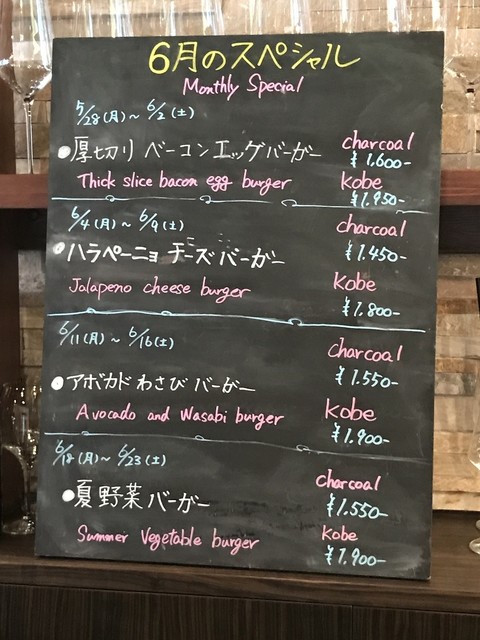 6月のスペシャル
Monthly Special
5/28(月)~6/2(土)
●厚切り ベーコンエッグバーガー charcoal
¥1.600-
Thick slice bacon egg burger Kobe
¥1.950-
6/4(月)~6/9(土) charcoal
●ハラペーニョ チーズバーガー ¥1.450-
Jalapeno cheese burger Kobe
¥1.800-
6/11(月)~6/16(土) charcoal
●アボカドわさびバーガー ¥1.550-
Avocado and Wasabi burger Kobe
¥1.900-
6/18(月)~6/23(土) charcoal
●夏野菜バーガー ¥1.550-
Summer Vegetable burger Kobe
¥1.900-